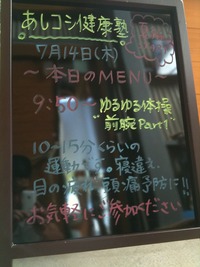 あしコシ健康塾
7月14日(木)
～本日のMENU～
9:50～ゆるゆる体操
"前腕Part1"
10~15分くらいの
運動です。寝違え、
目の疲れ、頭痛予防に!!
お気軽にご参加ください